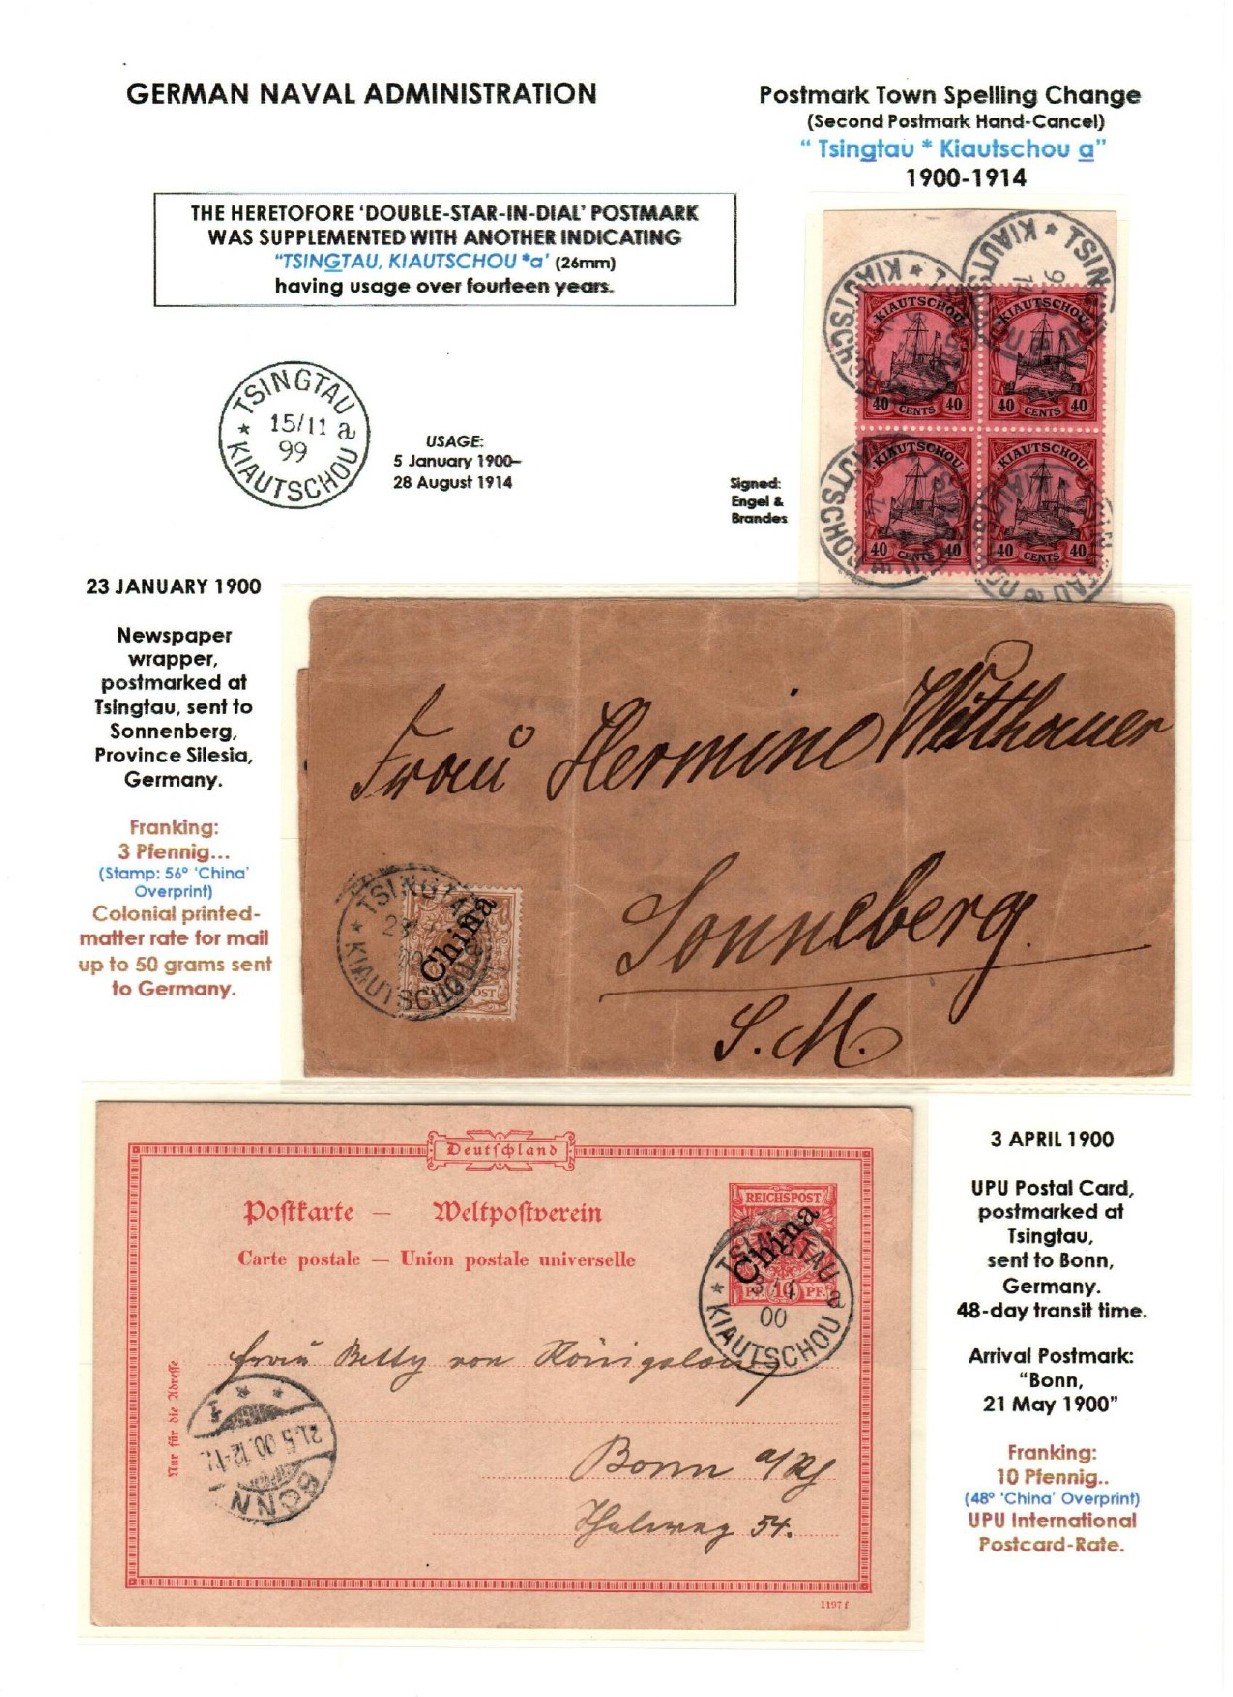 GERMAN NAVAL ADMINISTRATION
Postmark Town Spelling Change
(Second Postmark Hand-Cancel)
“ Tsingtau * Kiautschou a”
1900-1914
THE HERETOFORE ‘DOUBLE-STAR-IN-DIAL’ POSTMARK
WAS SUPPLEMENTED WITH ANOTHER INDICATING
“TSINGTAU, KIAUTSCHOU *a’ (26mm)
having usage over fourteen years.
TSINGTAU
* 15/11 a
99
KIAUTSCHOU
USAGE:
5 January 1900–
28 August 1914
Signed:
Engel &
Brandes
KIAUTSCHOU
40 CENTS 40
KIAUTSCHOU
40 CENTS 40
KIAUTSCHOU
40 CENTS 40
KIAUTSCHOU
40 CENTS 40
23 JANUARY 1900
Newspaper
wrapper,
postmarked at
Tsingtau, sent to
Sonnenberg,
Province Silesia,
Germany.
Franking:
3 Pfennig...
(Stamp: 56º ‘China’
Overprint)
Colonial printed-
matter rate for mail
up to 50 grams sent
to Germany.
Frau Hermine Witthauer
Sonneberg.
S. M.
TSINGTAU
KIAUTSCHOU
China
Deutschland
Postkarte — Weltpostverein
Carte postale — Union postale universelle
REICHSPOST
China
PF. 10 PF.
TSINGTAU
* 3/4 a
00
KIAUTSCHOU
Nur für die Adresse
Frau Betty von
Bonn a/Rh
54.
21.5.00.12-1
BONN
1197 f
3 APRIL 1900
UPU Postal Card,
postmarked at
Tsingtau,
sent to Bonn,
Germany.
48-day transit time.
Arrival Postmark:
“Bonn,
21 May 1900”
Franking:
10 Pfennig..
(48º ‘China’ Overprint)
UPU International
Postcard-Rate.